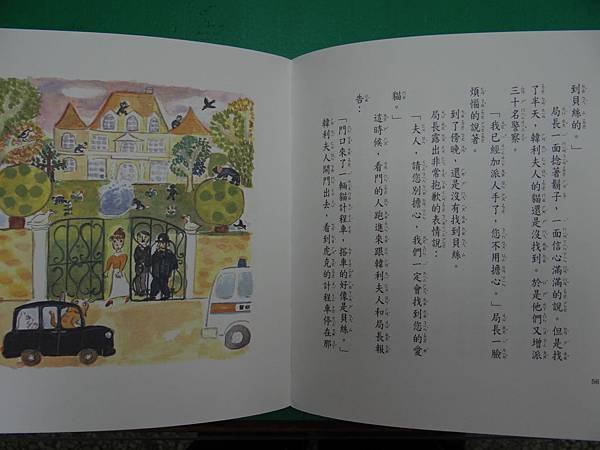 到貝絲的。」
局長一面捻著鬍子，一面信心滿滿的說。但是找
了半天，韓利夫人的貓還是沒找到。於是他們又增派
三十名警察。
「我已經加派人手了，您不用擔心。」局長一臉
煩惱的說著
到了傍晚，還是沒有找到貝絲。
局長露出非常抱歉的表情說：
「夫人，請您別擔心，我們一定會找到您的愛
貓。」
這時候，看門的人跑進來跟韓利夫人和局長報
告：
「門口來了一輛貓計程車，搭車的好像是貝絲。」
韓利夫人開門出去，看到虎克的計程車停在那
56